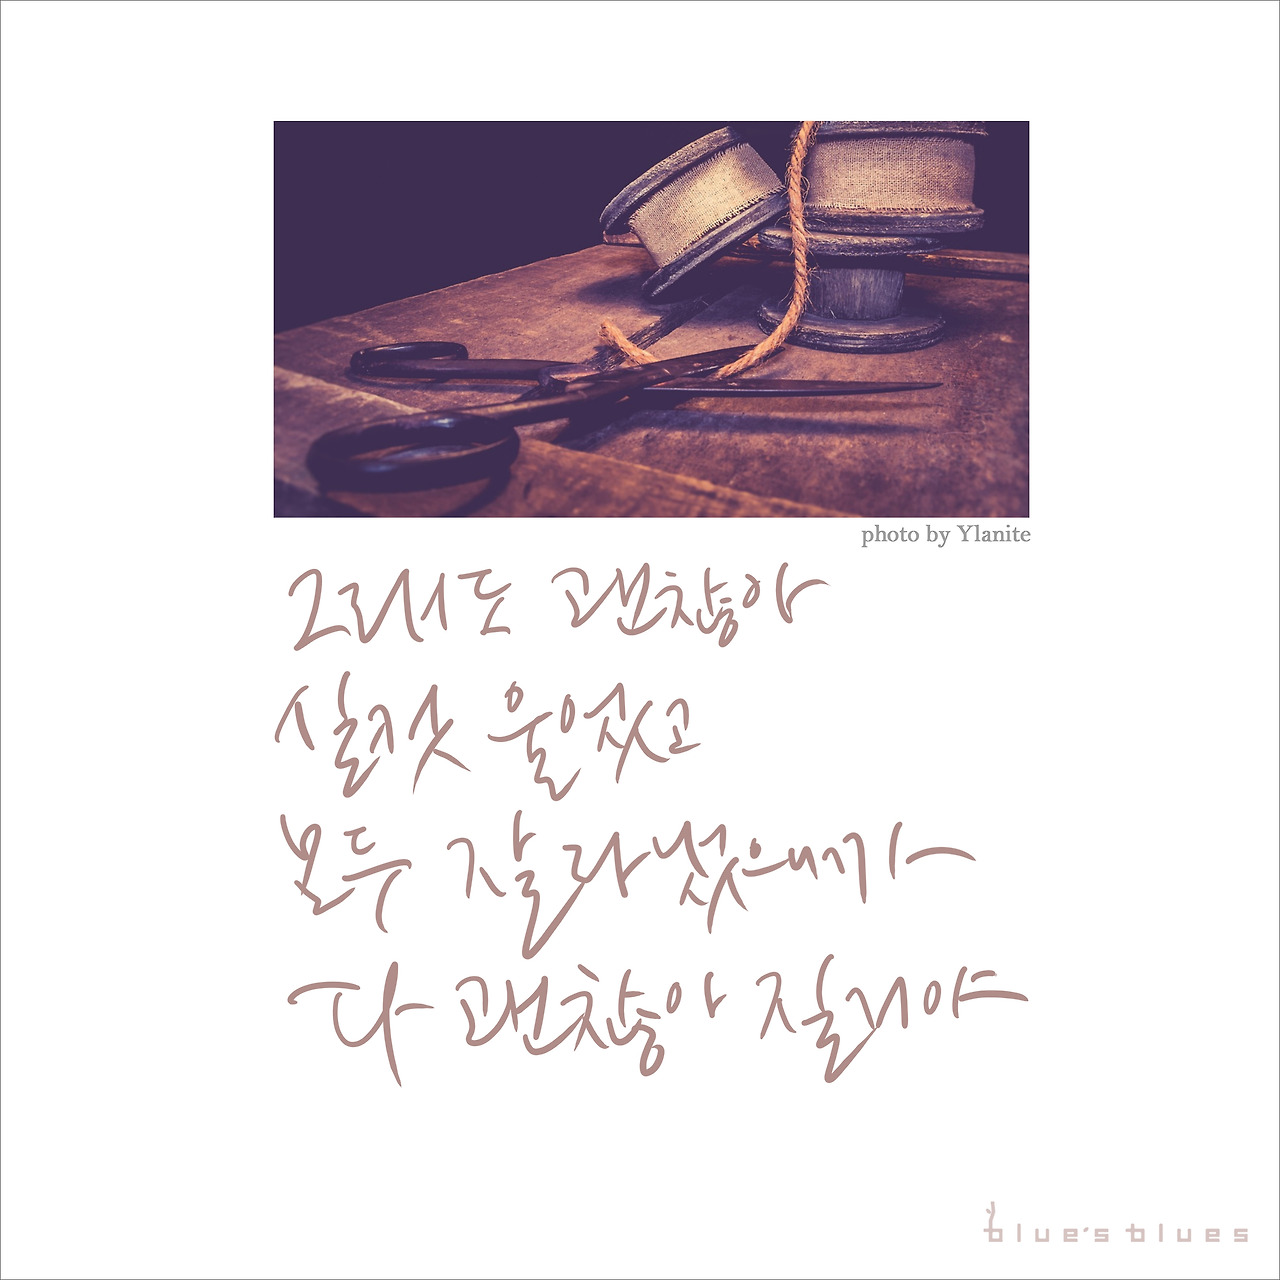 photo by Ylanite
그래서도 괜찮아
실컷 울었고
모두 잘라냈으니까
다 괜찮아 질거야
blue's blues